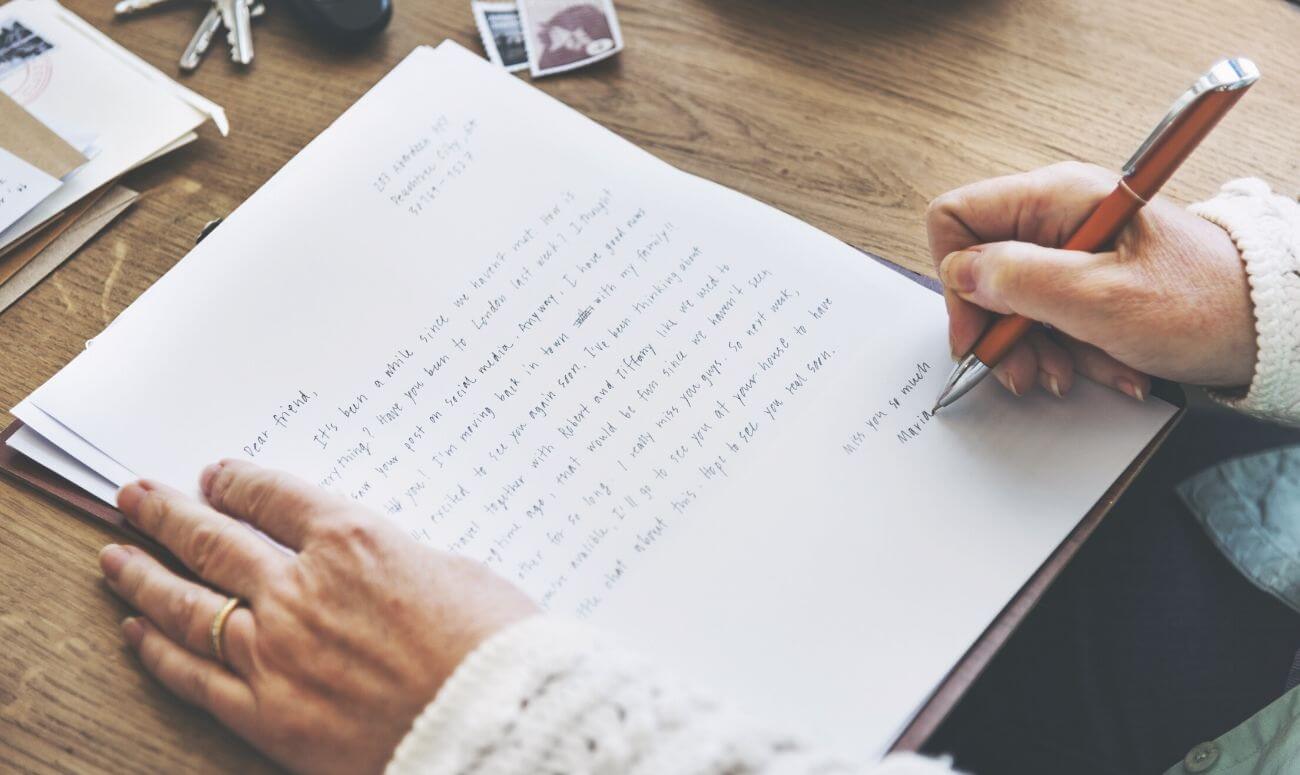 Dear friend,
It's been a while since we haven't met. How is
erything? Have you been to London last week? I thought
saw your post on social media. Anyway, I have good news
you! I'm moving back in town with my family!!
lly excited to see you again soon. I've been thinking about
travel together with Robert and Tiffany like we used to
ng time ago, that would be fun since we haven't seen
other for so long. I really miss you guys. So next week,
you're avalible, I'll go to see you at your house to have
ttle chat about this. Hope to see you real soon.
Miss you so much
Maria